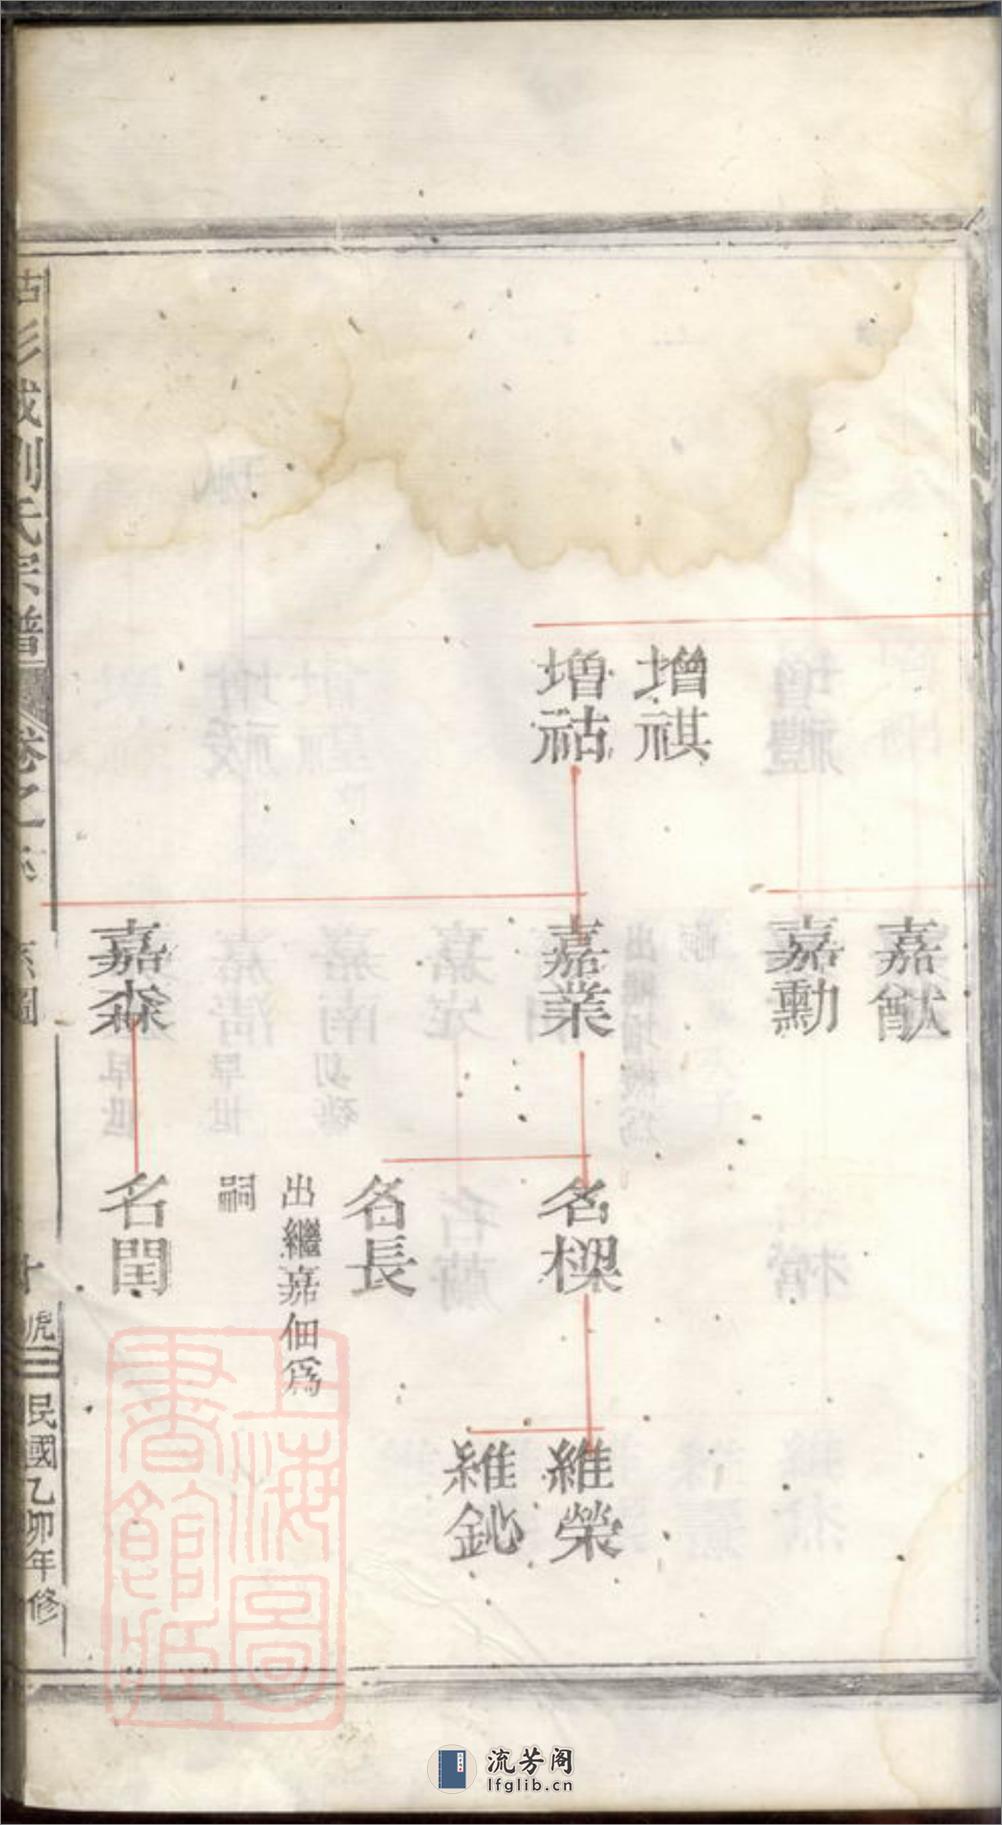 增祺
增祜
嘉猷
嘉勳
嘉業
嘉森
名樑
名長
出繼嘉佃爲
嗣
名閏
維榮
維鈋
古彭城劉氏宗譜
卷之六
系圖
十
民國乙卯年修
上海圖書館藏
流芳阁
lfglib.cn